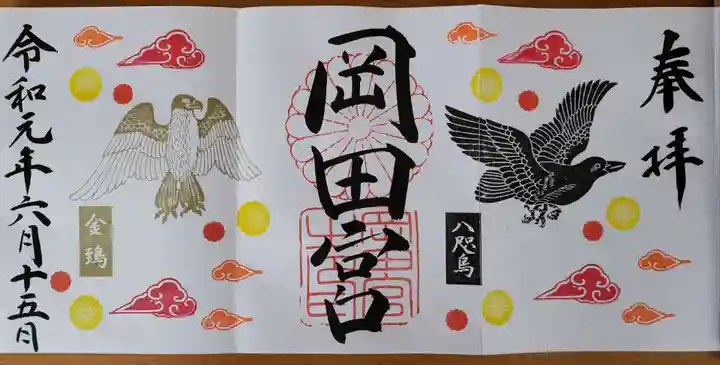 奉拝
八咫烏
岡田宮
金鵄
令和元年六月十五日